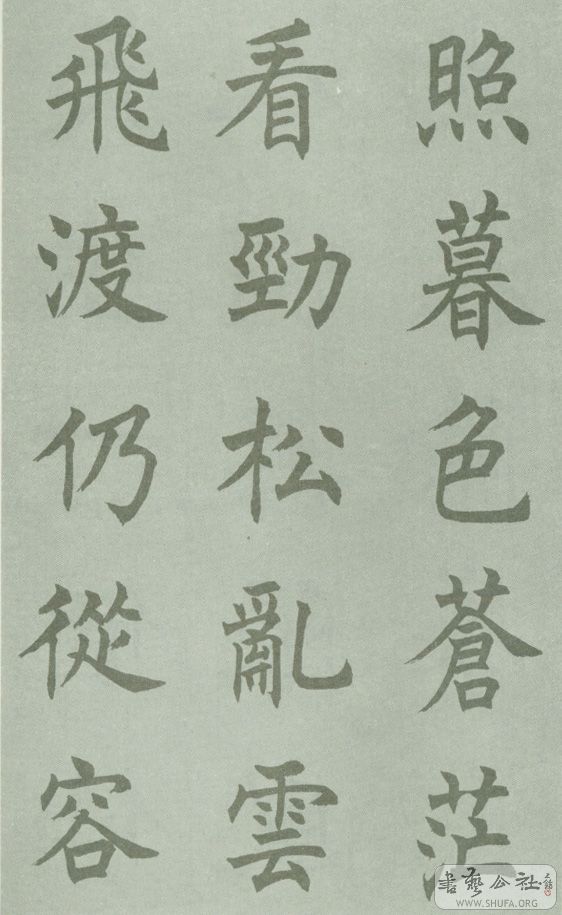 照暮色蒼茫
看勁松亂雲
飛渡仍從容
書藝公社
WWW.SHUFA.ORG